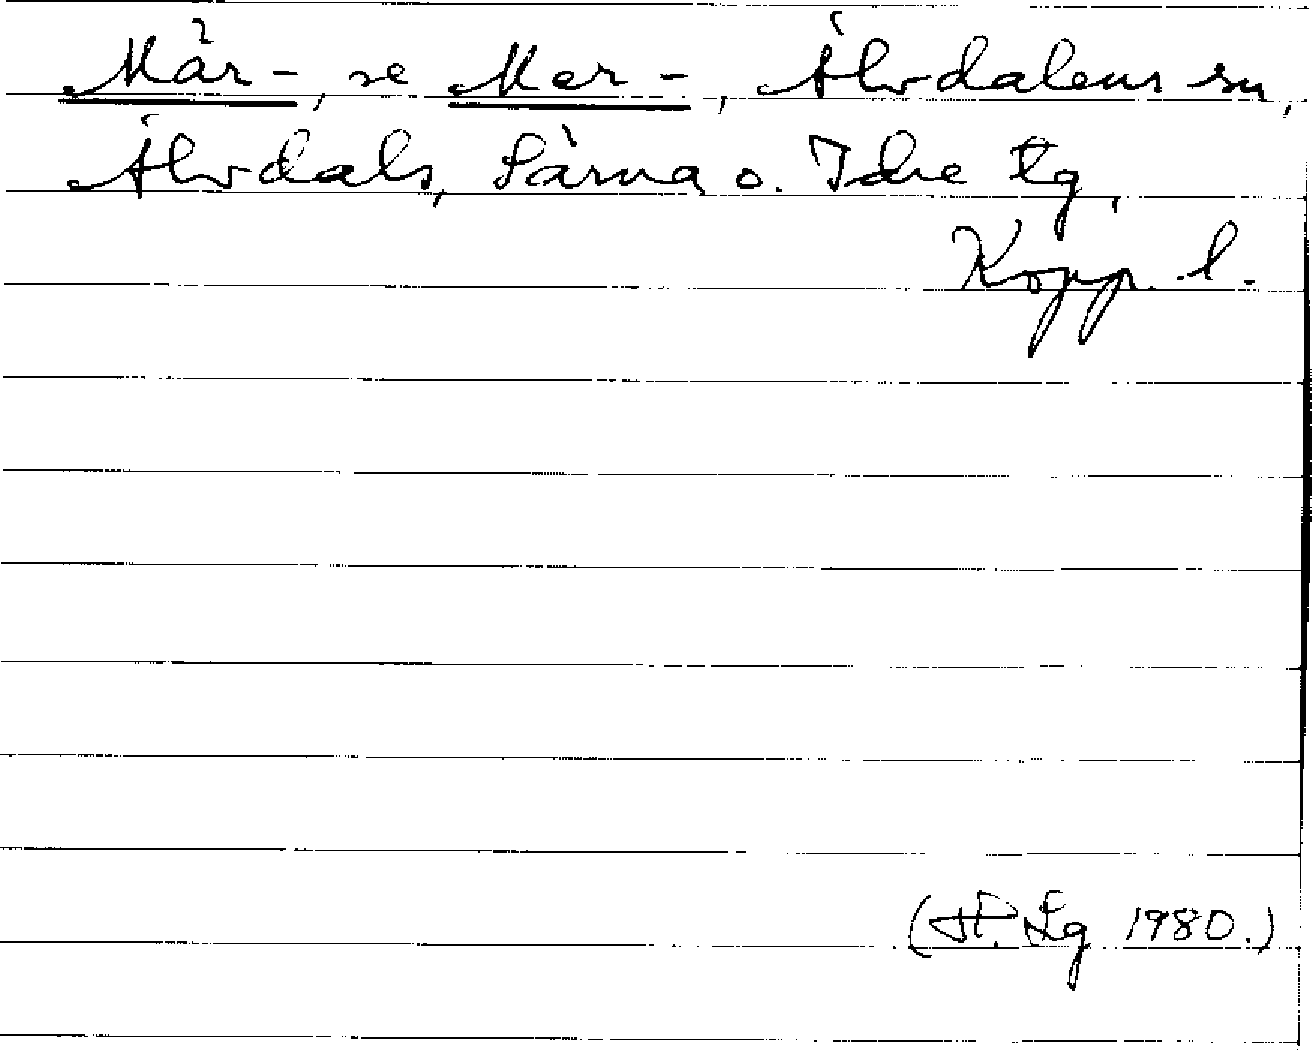 Mär-, se Mer-, Älvdalens sn,
Älvdals, Särna o. Idre tg,
Kopp. l.
(H. Lg 1980.)